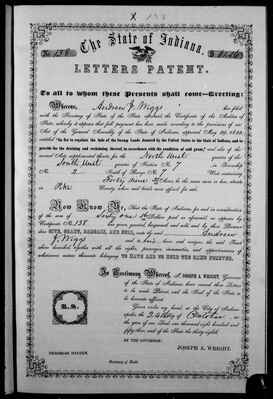 The State of Indiana.
LETTERS PATENT.
To all to whom these Presents shall come—Greeting:
Whereas, Andrew J. Wiggs has filed
with the Secretary of State of the State aforesaid, the Certificate of the Auditor of
State, whereby it appears that full payment has been made according to the provisions of an
Act of the General Assembly of the State of Indiana, approved May 29, 1852,
North West quarter of the
South West quarter of Section No. 7 in Township
No. 2 of Range No. 7 West containing
acres, be the same more or less, situate
in Pike County, when and made offered for sale.
Now Know Ye, That the State of Indiana, for and in consideration
of the sum of Forty one Dollars paid as aforesaid, as appears by
Certificate No. 138 has given, granted, bargained and sold, and by these Presents
does GIVE, GRANT, BARGAIN, AND SELL, unto the said Andrew
J. Wiggs and to heirs, and assigns the said Tract
above described, together with all the rights, privileges, immunities, and appurtenances of
whatsoever nature thereunto belonging, TO HAVE AND TO HOLD THE SAME FOREVER.
In Testimony Whereof, I, JOSEPH A. WRIGHT, Governor
of the State of Indiana, have caused these Letters
to be made Patent, and the Seal of the State to
be hereunto affixed.
L. S.
Given under my hand, at the City of Indianapolis, the 24 day of October in
the year of our Lord one thousand eight hundred and
fifty three and of the State the thirty eighth.
BY THE GOVERNOR:
JOSEPH A. WRIGHT.
NEHEMIAH HAYDEN,
Secretary of State